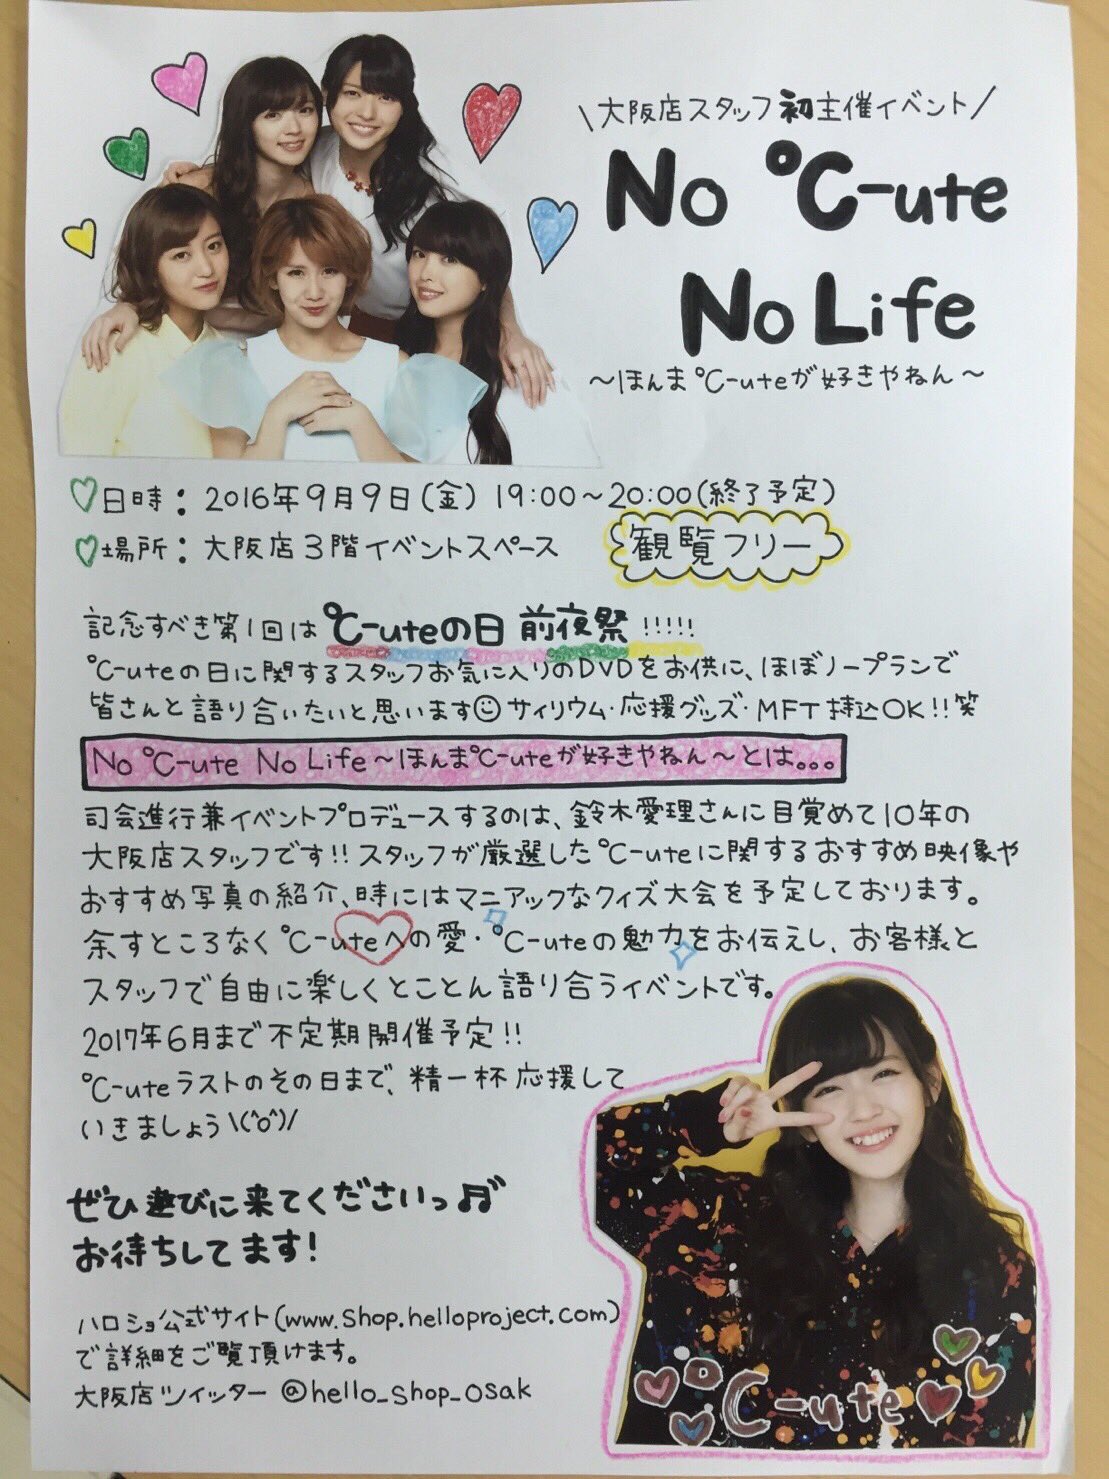 \大阪店スタッフ初主催イベント/
No ℃-ute
No Life
～ほんま℃-uteが好きやねん～
日時：2016年9月9日(金) 19:00～20:00(終了予定)
場所：大阪店3階イベントスペース
観覧フリー
記念すべき第1回は ℃-uteの日 前夜祭 !!!!!
℃-uteの日に関するスタッフお気に入りのDVDをお供に、ほぼノープランで
皆さんと語り合いたいと思います☺ サイリウム・応援グッズ・MFT持込OK!!笑
No ℃-ute No Life～ほんま℃-uteが好きやねん～とは。。。
司会進行兼イベントプロデュースするのは、鈴木愛理さんに目覚めて10年の
大阪店スタッフです!! スタッフが厳選した℃-uteに関するおすすめ映像や
おすすめ写真の紹介、時にはマニアックなクイズ大会を予定しております。
余すところなく℃-uteへの愛・℃-uteの魅力をお伝えし、お客様と
スタッフで自由に楽しくとことん語り合うイベントです。
2017年6月まで不定期開催予定!!
℃-uteラストのその日まで、精一杯応援して
いきましょう\(^o^)/
ぜひ遊びに来てくださいっ♬
お待ちしてます!
ハロショ公式サイト(www.shop.helloproject.com)
で詳細をご覧頂けます。
大阪店ツイッター @hello_shop_osak
℃-ute